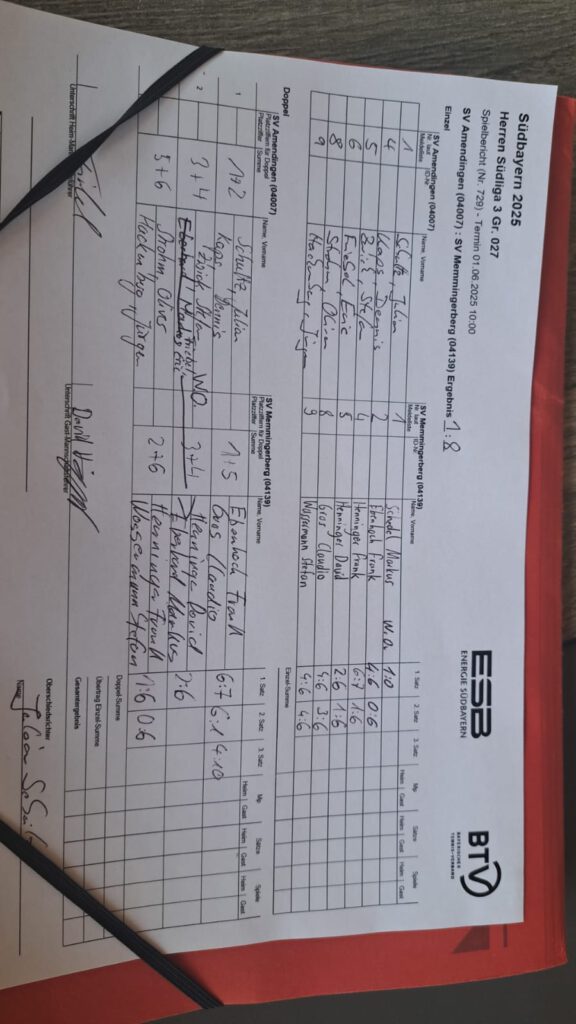 Südbayern 2025
Herren Südliga 3 Gr. 027
Spielbericht (Nr. 729) - Termin 01.06.2025 10:00
SV Amendingen (04007) : SV Memmingerberg (04139) Ergebnis 1:8
ESB
ENERGIE SÜDBAYERN
BTV
BAYERISCHER
TENNIS-VERBAND
Einzel
SV Amendingen (04007) SV Memmingerberg (04139)
Nr. laut Meldeliste ID-Nr. Name, Vorname Nr. laut Meldeliste ID-Nr. Name, Vorname 1. Satz 2. Satz 3. Satz Mp Sätze Spiele
Heim Gast Heim Gast Heim Gast
1 Schultz, Julian 1 Schädel Markus W.O. 1:0
4 Kaps, Dennis 2 Ebenhoch Frank 4:6 0:6
5 Stefan 4 Henninger Frank 6:7 1:6
6 Eric 5 Henninger David 2:6 1:6
8 Strohm, Oliver 8 Gros Claudio 4:6 3:6
9 Hackenberg, Jürgen 9 Wassermann Stefan 4:6 4:6
Einzel-Summe
Doppel
SV Amendingen (04007) SV Memmingerberg (04139)
Platzziffern für Doppel
Platzziffer Summe Name, Vorname Platzziffern für Doppel
Platzziffer Summe Name, Vorname 1. Satz 2. Satz 3. Satz Mp Sätze Spiele
Heim Gast Heim Gast Heim Gast
1 1+2 Schultz, Julian 1+5 Ebenhoch Frank 6:7 6:1 4:10
Kaps, Dennis Gros Claudio
2 3+4 Stefan W.O. 3+4 Henninger David 1:6
Eberhard Markus
5+6 Strohm Oliver 2+6 Henninger Frank 1:6 0:6
Hackenberg Jürgen Wassermann Stefan
Doppel-Summe
Übertrag Einzel-Summe
Gesamtergebnis
Unterschrift Heim-Mannschaftsführer Unterschrift Gast-Mannschaftsführer Oberschiedsrichter
Name